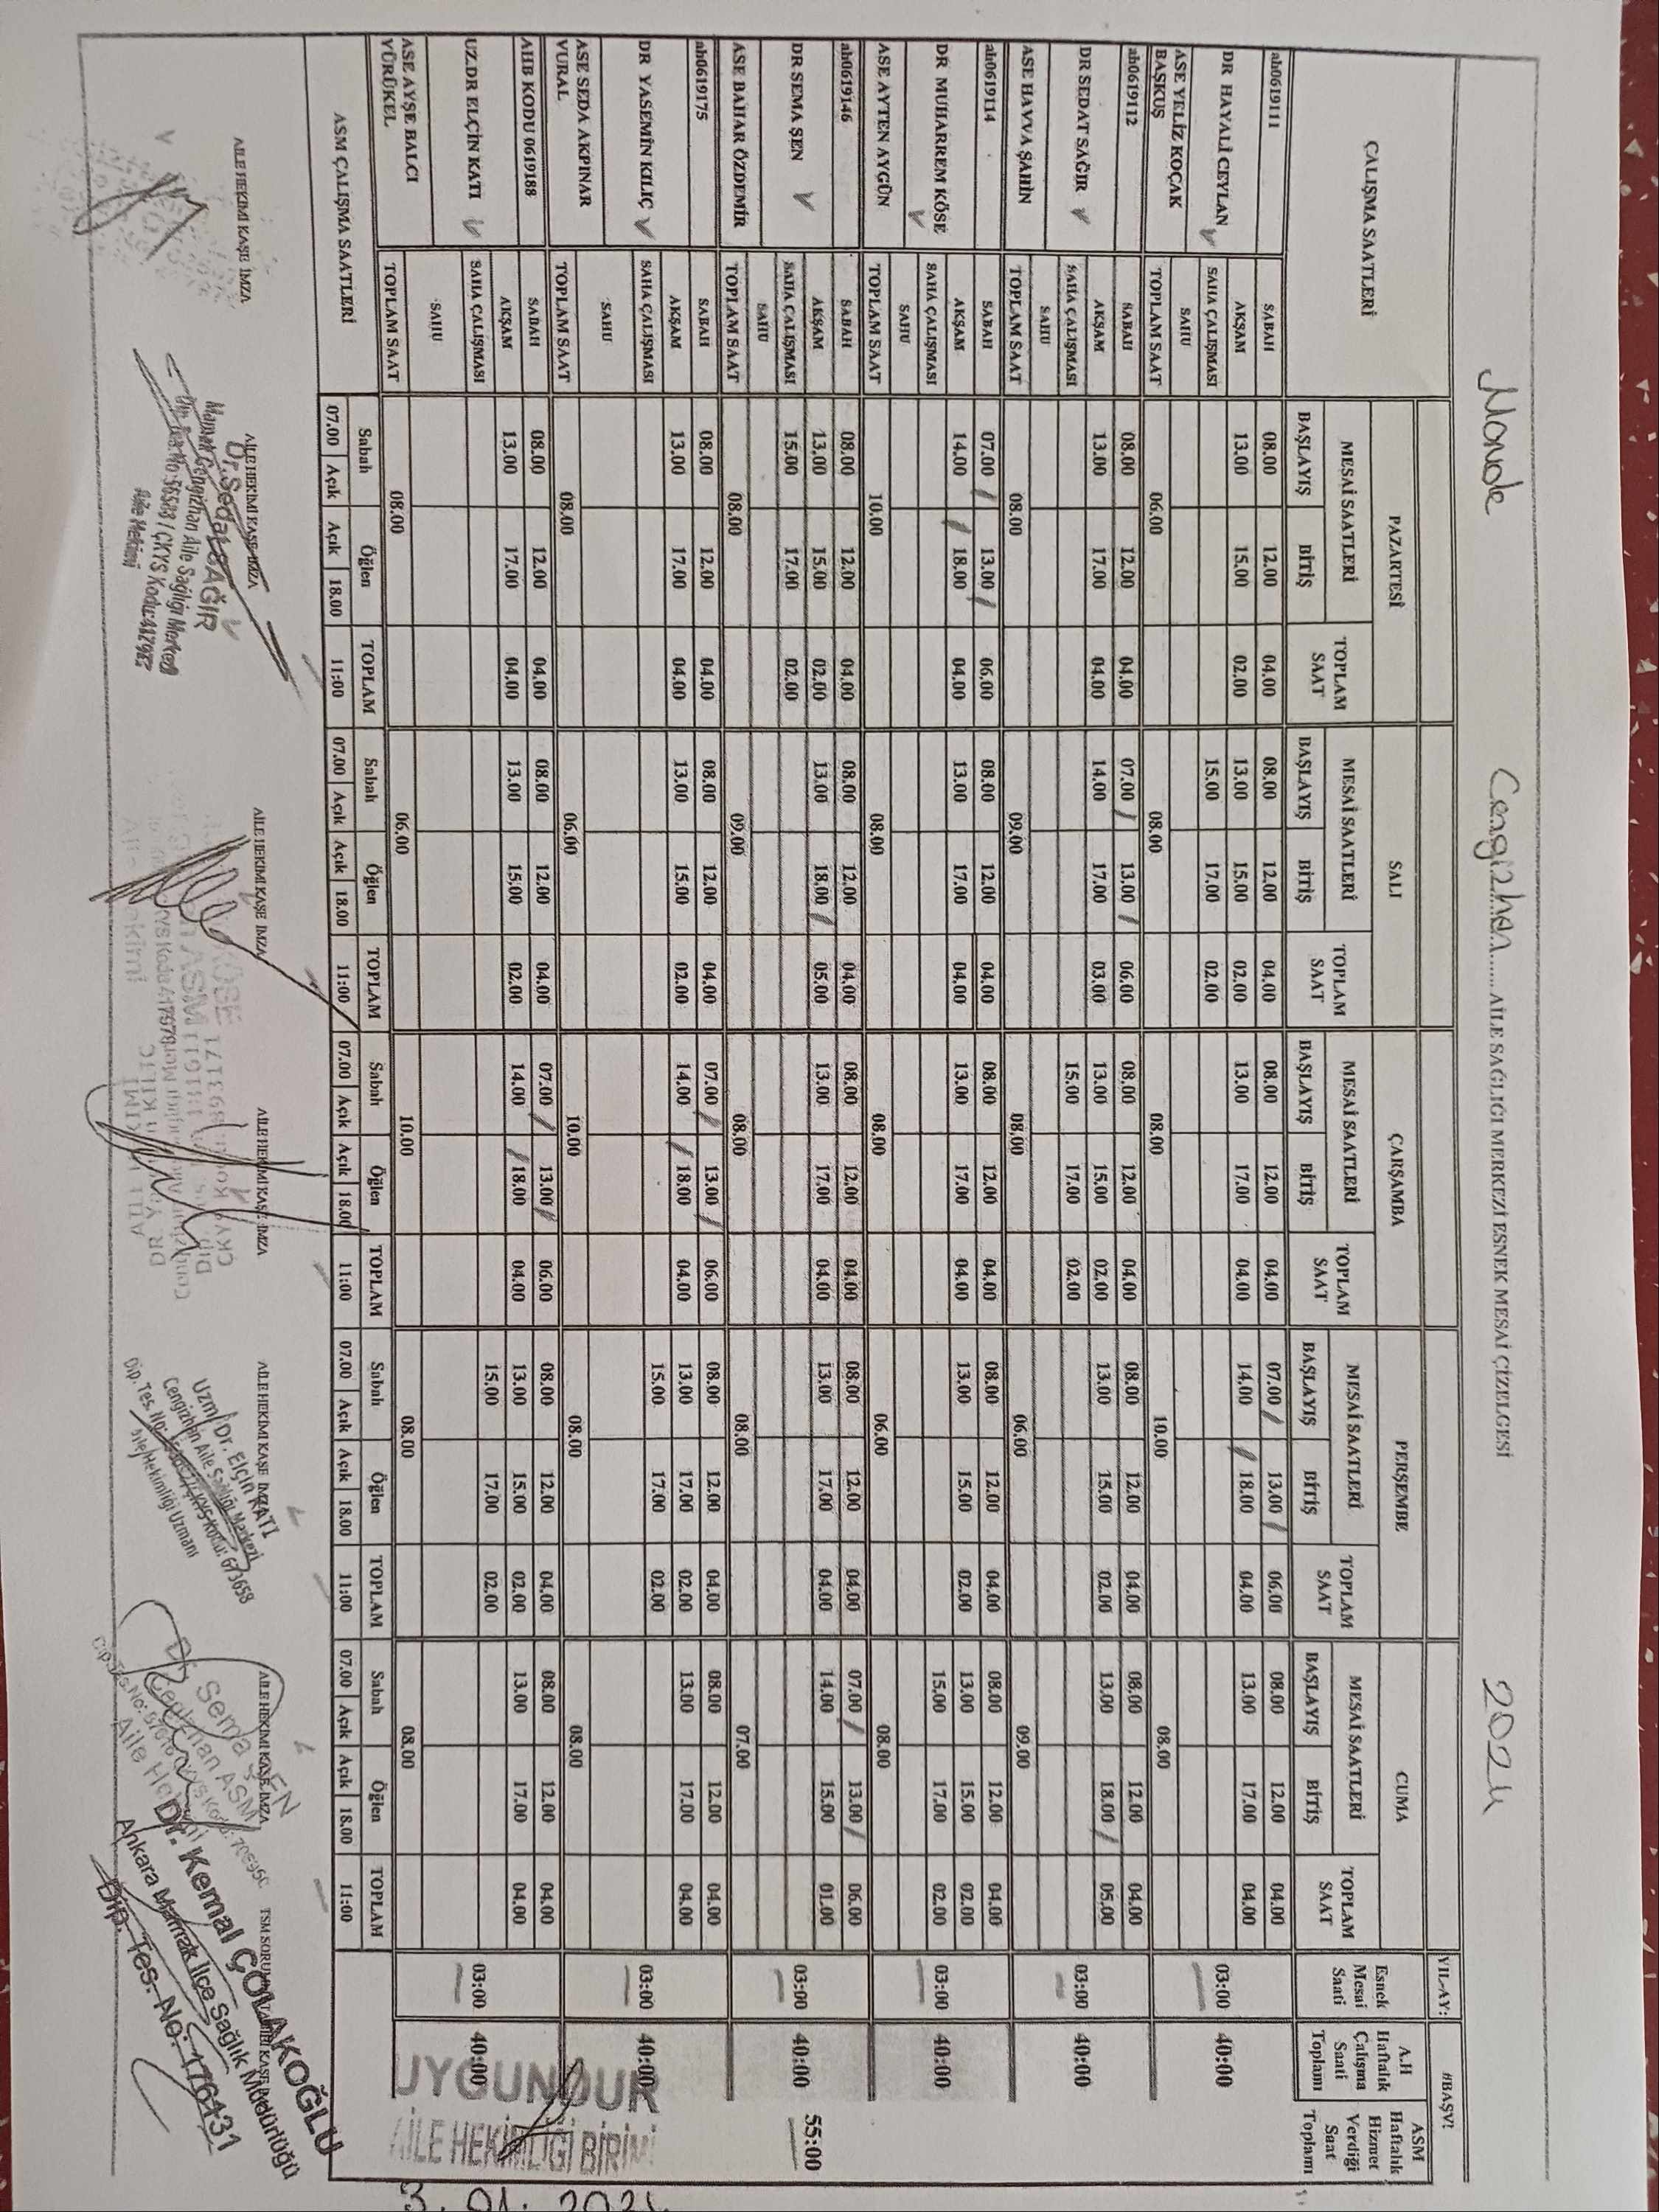 Mamak Cengizhan..... AİLE SAĞLIĞI MERKEZİ ESNEK MESAİ ÇİZELGESİ 2024
YIL-AY: #BAŞV!
ÇALIŞMA SAATLERİ PAZARTESİ SALI ÇARŞAMBA PERŞEMBE CUMA Esnek Mesai Saati A.H Haftalık Çalışma Saati Toplamı ASM Haftalık Hizmet Verdiği Saat Toplamı
MESAİ SAATLERİ TOPLAM SAAT MESAİ SAATLERİ TOPLAM SAAT MESAİ SAATLERİ TOPLAM SAAT MESAİ SAATLERİ TOPLAM SAAT MESAİ SAATLERİ TOPLAM SAAT
BAŞLAYIŞ BİTİŞ BAŞLAYIŞ BİTİŞ BAŞLAYIŞ BİTİŞ BAŞLAYIŞ BİTİŞ BAŞLAYIŞ BİTİŞ
ah0619111 SABAH 08.00 12.00 04.00 08.00 12.00 04.00 08.00 12.00 04.00 07.00 13.00 06.00 08.00 12.00 04.00
DR HAYALİ CEYLAN AKŞAM 13.00 15.00 02.00 13.00 15.00 02.00 13.00 17.00 04.00 14.00 18.00 04.00 13.00 17.00 04.00 03:00 40:00
SAHA ÇALIŞMASI 15.00 17.00 02.00
ASE YELİZ KOÇAK BAŞKUŞ SAHU
TOPLAM SAAT 06.00 08.00 08.00 10.00 08.00
ah0619112 SABAH 08.00 12.00 04.00 07.00 13.00 06.00 08.00 12.00 04.00 08.00 12.00 04.00 08.00 12.00 04.00
DR SEDAT SAĞIR AKŞAM 13.00 17.00 04.00 14.00 17.00 03.00 13.00 15.00 02.00 13.00 15.00 02.00 13.00 18.00 05.00 03:00 40:00
SAHA ÇALIŞMASI 15.00 17.00 02.00
ASE HAVVA ŞAHİN SAHU
TOPLAM SAAT 08.00 09.00 08.00 06.00 09.00
ah0619114 SABAH 07.00 13.00 06.00 08.00 12.00 04.00 08.00 12.00 04.00 08.00 12.00 04.00 08.00 12.00 04.00
DR MUHARREM KÖSE AKŞAM 14.00 18.00 04.00 13.00 17.00 04.00 13.00 17.00 04.00 13.00 15.00 02.00 13.00 15.00 02.00 03:00 40:00
SAHA ÇALIŞMASI 15.00 17.00 02.00
ASE AYTEN AYGÜN SAHU
TOPLAM SAAT 10.00 08.00 08.00 06.00 08.00
ah0619146 SABAH 08.00 12.00 04.00 08.00 12.00 04.00 08.00 12.00 04.00 08.00 12.00 04.00 07.00 13.00 06.00
DR SEMA ŞEN AKŞAM 13.00 15.00 02.00 13.00 18.00 05.00 13.00 17.00 04.00 13.00 17.00 04.00 14.00 15.00 01.00 03:00 40:00 55:00
SAHA ÇALIŞMASI 15.00 17.00 02.00
ASE BAHAR ÖZDEMİR SAHU
TOPLAM SAAT 08.00 09.00 08.00 08.00 07.00
ah0619175 SABAH 08.00 12.00 04.00 08.00 12.00 04.00 07.00 13.00 06.00 08.00 12.00 04.00 08.00 12.00 04.00
DR YASEMİN KILIÇ AKŞAM 13.00 17.00 04.00 13.00 15.00 02.00 14.00 18.00 04.00 13.00 17.00 02.00 13.00 17.00 04.00 03:00 40:00
SAHA ÇALIŞMASI 15.00 17.00 02.00
ASE SEDA AKPINAR VURAL SAHU
TOPLAM SAAT 08.00 06.00 10.00 08.00 08.00
AHB KODU 0619188 SABAH 08.00 12.00 04.00 08.00 12.00 04.00 07.00 13.00 06.00 08.00 12.00 04.00 08.00 12.00 04.00
UZ.DR ELÇİN KATI AKŞAM 13.00 17.00 04.00 13.00 15.00 02.00 14.00 18.00 04.00 13.00 15.00 02.00 13.00 17.00 04.00 03:00 40:00
SAHA ÇALIŞMASI 15.00 17.00 02.00
ASE AYŞE BALCI YÜRÜKEL SAHU
TOPLAM SAAT 08.00 06.00 10.00 08.00 08.00
UYGUNDUR
AİLE HEKİMLİĞİ BİRİMİ
ASM ÇALIŞMA SAATLERİ Sabah Öğlen TOPLAM Sabah Öğlen TOPLAM Sabah Öğlen TOPLAM Sabah Öğlen TOPLAM Sabah Öğlen TOPLAM
07.00 Açık Açık 18.00 11:00 07.00 Açık Açık 18.00 11:00 07.00 Açık Açık 18.00 11:00 07.00 Açık Açık 18.00 11:00 07.00 Açık Açık 18.00 11:00
AİLE HEKİMİ KAŞE İMZA AİLE HEKİMİ KAŞE İMZA AİLE HEKİMİ KAŞE İMZA AİLE HEKİMİ KAŞE İMZA AİLE HEKİMİ KAŞE İMZA AİLE HEKİMİ KAŞE İMZA
Dr. Sedat SAĞIR
Mamak Cengizhan Aile Sağlığı Merkezi
Aile Hekimi
Uzm. Dr. Elçin KATI
Cengizhan Aile Sağlığı Merkezi
Aile Hekimliği Uzmanı
Dr. Sema ŞEN
Cengizhan ASM
Dr. Kemal ÇOLAKOĞLU
Ankara Mamak İlçe Sağlık Müdürlüğü
Dip. Tes. No: 176431